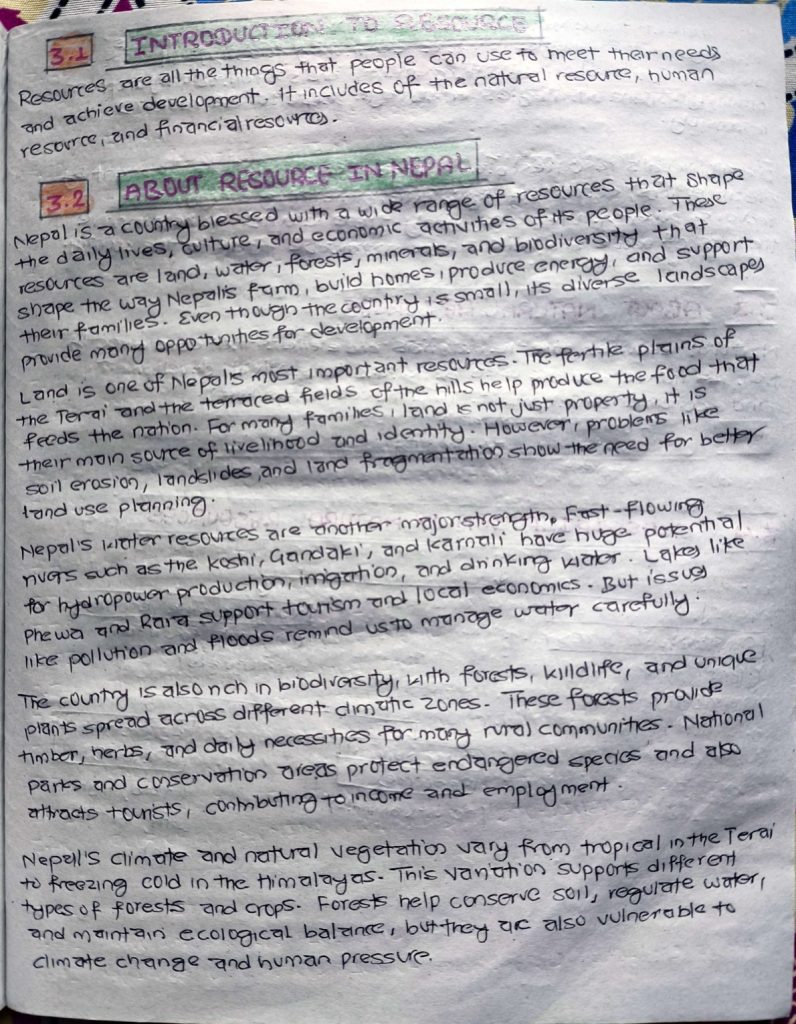 3.1 INTRODUCTION TO RESOURCE
Resources are all the things that people can use to meet their needs
and achieve development. It includes of the natural resource, human
resource, and financial resources.
3.2 ABOUT RESOURCE IN NEPAL
Nepal is a country blessed with a wide range of resources that shape
the daily lives, culture, and economic activities of its people. These
resources are land, water, forests, minerals, and biodiversity that
shape the way Nepalis farm, build homes, produce energy, and support
their families. Even though the country is small, its diverse landscapes
provide many opportunities for development.
Land is one of Nepal's most important resources. The fertile plains of
the Terai and the terraced fields of the hills help produce the food that
feeds the nation. For many families, land is not just property, it is
their main source of livelihood and identity. However, problems like
soil erosion, landslides, and land fragmentation show the need for better
land use planning.
Nepal's water resources are another major strength. Fast-flowing
rivers such as the Koshi, Gandaki, and Karnali have huge potential
for hydropower production, irrigation, and drinking water. Lakes like
Phewa and Rara support tourism and local economics. But issues
like pollution and floods remind us to manage water carefully.
The country is also rich in biodiversity, with forests, wildlife, and unique
plants spread across different climatic zones. These forests provide
timber, herbs, and daily necessities for many rural communities. National
parks and conservation areas protect endangered species and also
attracts tourists, contributing to income and employment.
Nepal's climate and natural vegetation vary from tropical in the Terai
to freezing cold in the Himalayas. This variation supports different
types of forests and crops. Forests help conserve soil, regulate water,
and maintain ecological balance, but they are also vulnerable to
climate change and human pressure.